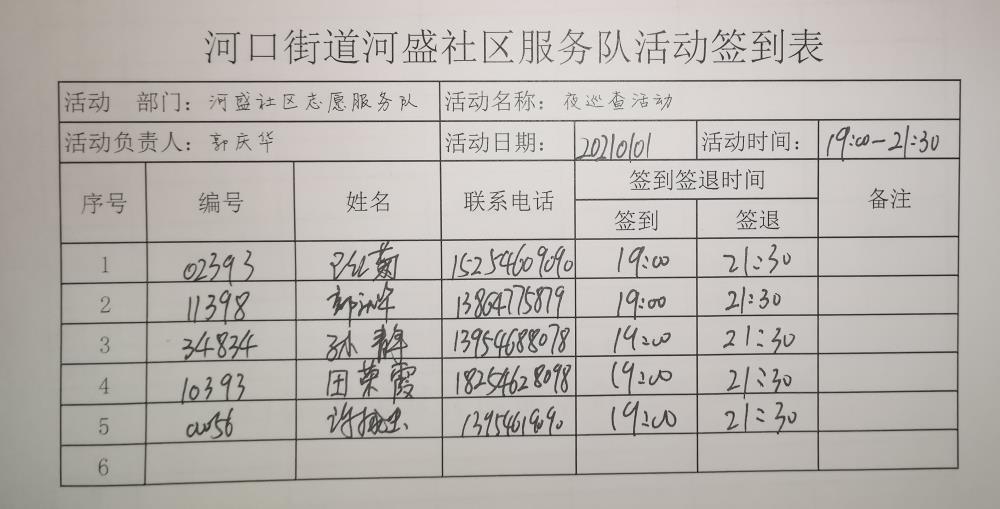 河口街道河盛社区服务队活动签到表
活动 部门：河盛社区志愿服务队 活动名称：夜巡查活动
活动负责人：郭庆华 活动日期： 20210101 活动时间： 19:00-21:30
序号 编号 姓名 联系电话 签到签退时间 备注
签到 签退
1 02393 15254609090 19:00 21:30
2 11398 13864775879 19:00 21:30
3 34834 孙静 13954688078 19:00 21:30
4 10393 田荣霞 18254628098 19:00 21:30
5 0056 13954619090 19:00 21:30
6